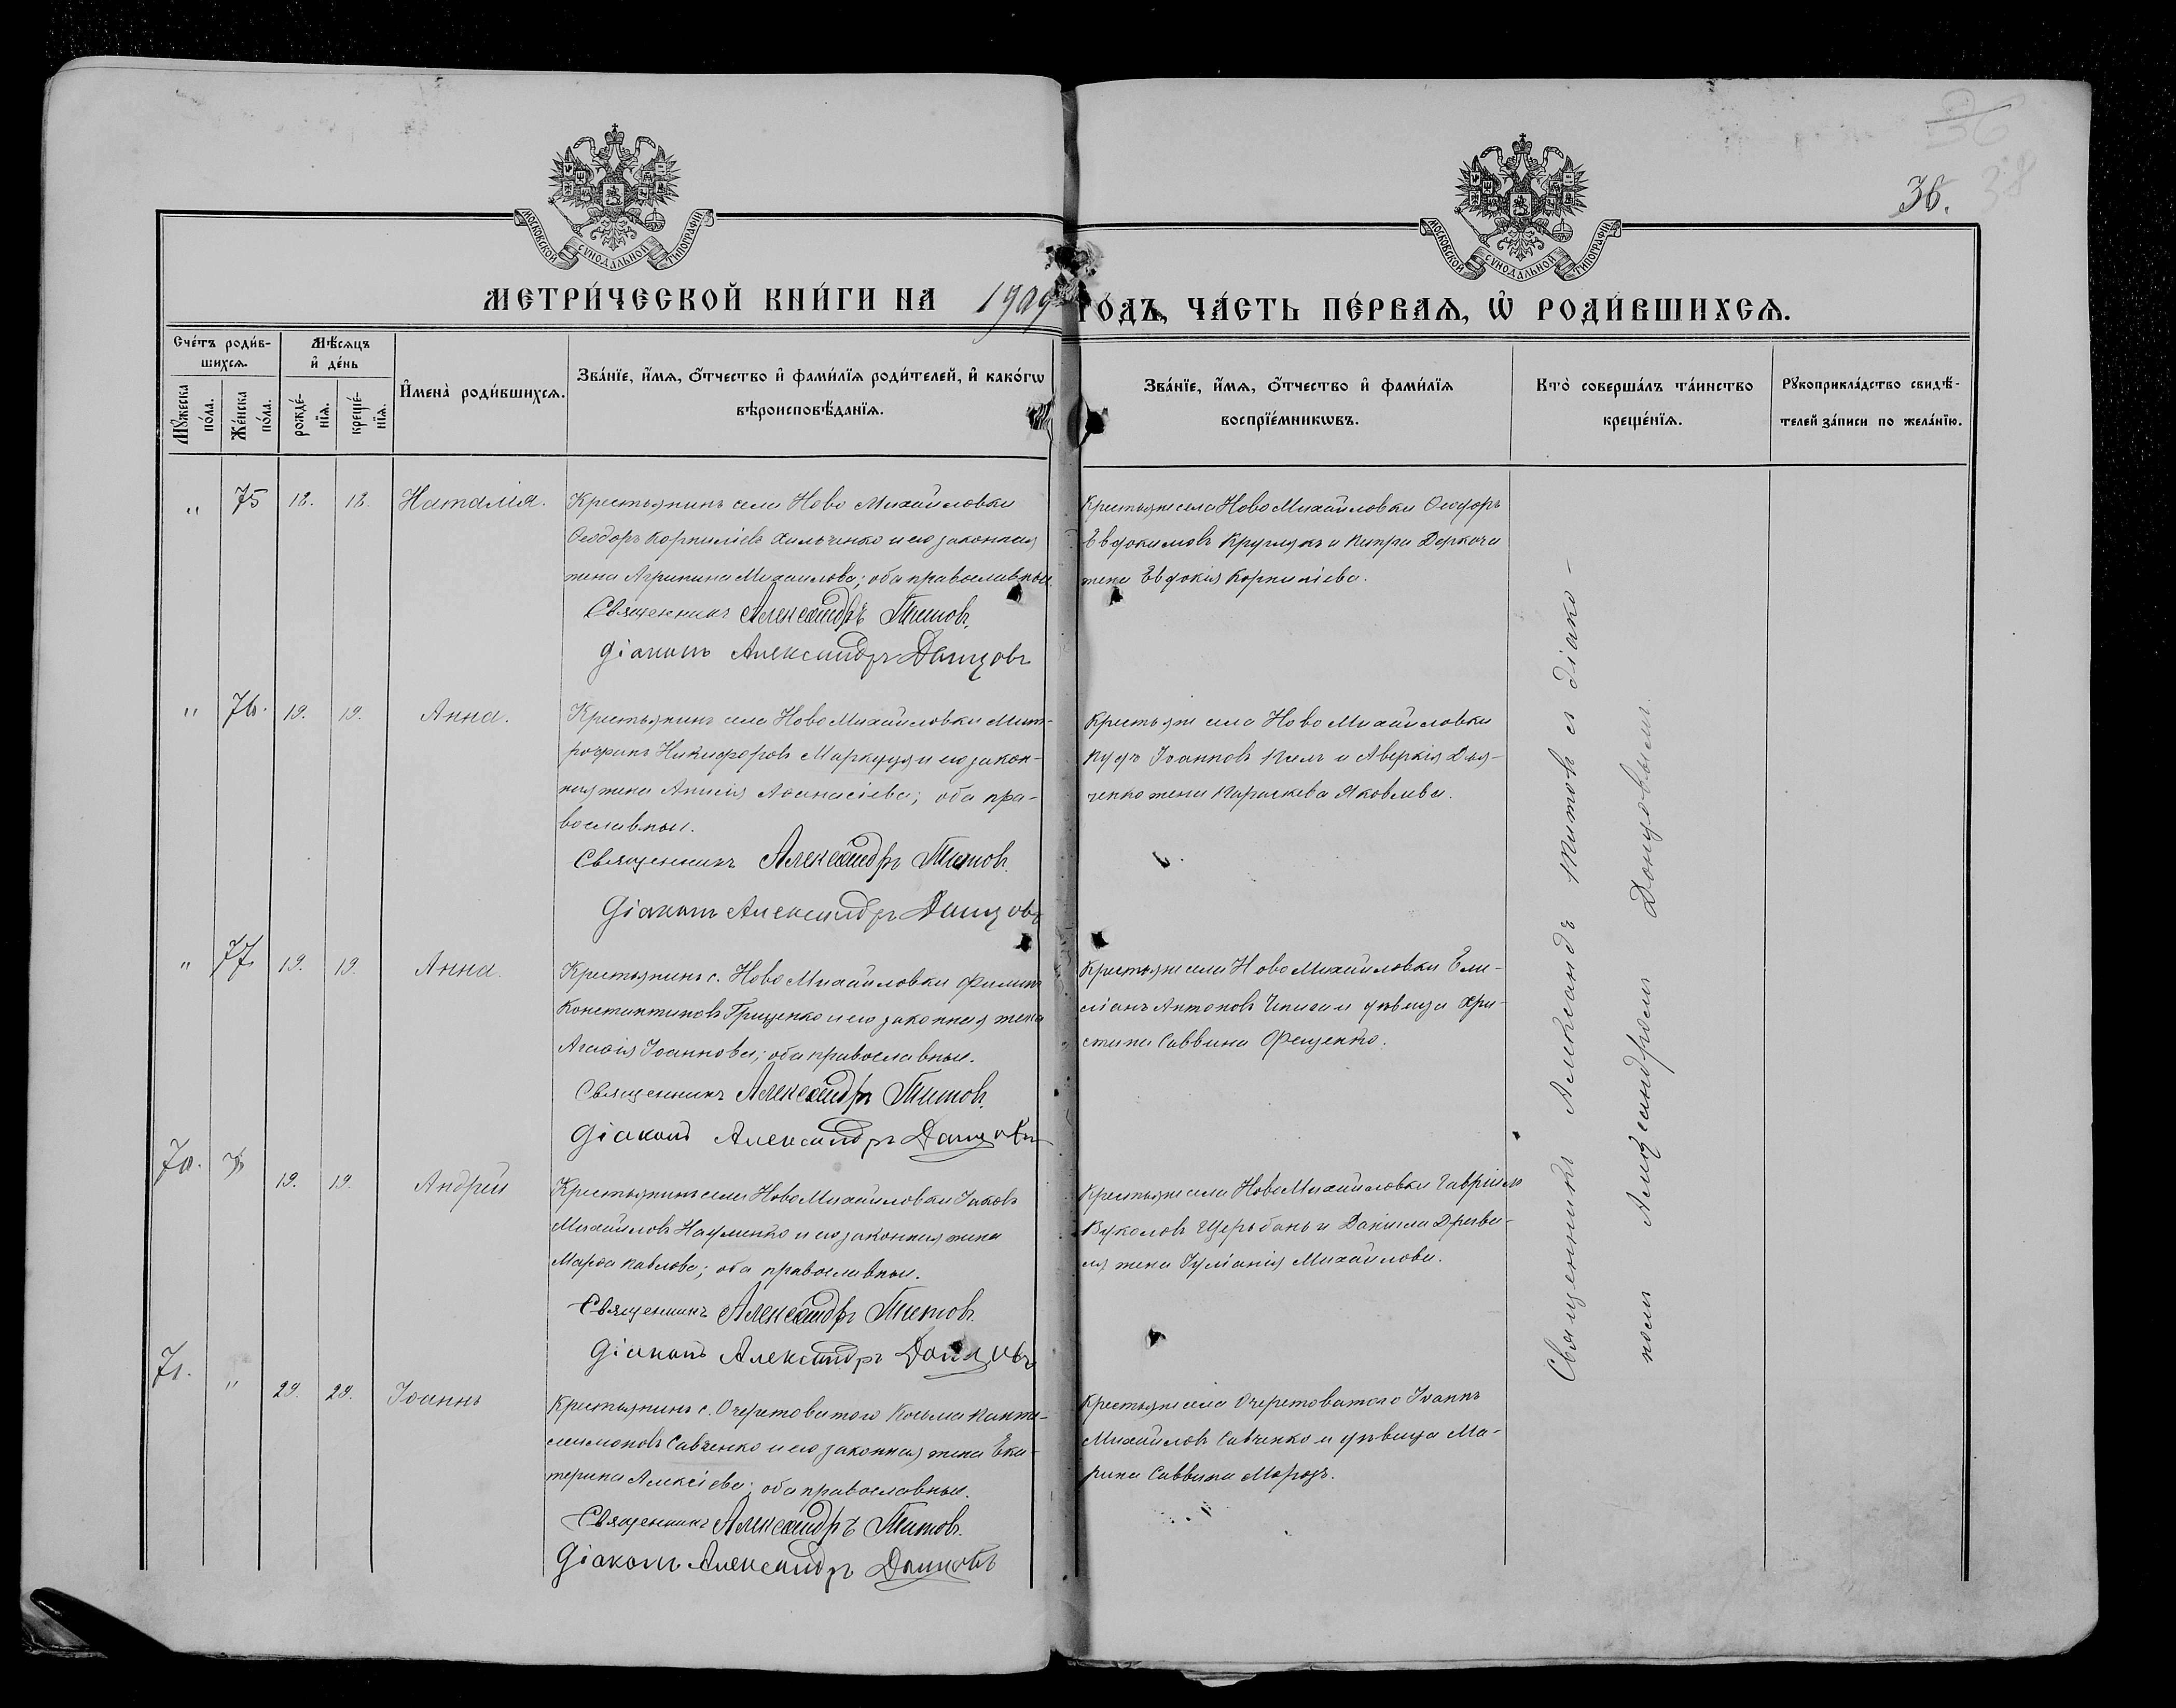 36.
38
МОСКОВСКОЙ СѴНОДАЛЬНОЙ ТИПОГРАФІИ
МОСКОВСКОЙ СѴНОДАЛЬНОЙ ТИПОГРАФІИ
МЕТРИ́ЧЕСКОЙ КНИ́ГИ НА 1909 ГО́ДЪ, ЧА́СТЬ ПЕ́РВАѦ, Ѡ҆ РОДИ́ВШИХСѦ.
Сче́тъ роди́в-
шихсѧ.
Мꙋ́жеска
по́ла.
Же́нска
по́ла.
Мѣ́сѧцъ
и҆ де́нь
рожде́-
нїѧ.
креще́-
нїѧ.
И҆мена̀ роди́вшихсѧ.
Зва́нїе, и҆́мѧ, ѻ҆́тчество и҆ фами́лїѧ роди́телей, и҆ како́гѡ
вѣроисповѣ́данїѧ.
Зва́нїе, и҆́мѧ, ѻ҆́тчество и҆ фами́лїѧ
воспрїе́мникѡвъ.
Кто̀ соверша́лъ та́инство
креще́нїѧ.
Рꙋкоприкла́дство свидѣ́-
телей за́писи по жела́нїю.
" 75 18. 18. Наталія.
Крестьянинъ села Ново Михайловки
Ѳеодоръ Корниліевъ Хильченко и его законная
жена Агрипина Михаилова; оба православные.
Священникъ Александръ Титовъ.
Діаконъ Александръ Донцовъ
Крестьяне села Ново Михайловки Ѳеодоръ
Евдокимовъ Круглякъ и Петра Деркача
жена Евдокія Корниліева.
" 76. 19. 19. Анна.
Крестьянинъ села Ново Михайловки Мит-
рофанъ Никифоровъ Маркуця и его закон-
ная жена Анисія Аѳанасіева; оба пра-
вославные.
Священникъ Александръ Титовъ.
Діаконъ Александръ Донцовъ
Крестьяне села Ново Михайловки
Іоанновъ и Аверкія Дья-
ченко жена Параскева Яковлева.
" 77. 19. 19. Анна.
Крестьянинъ с. Ново Михайловки Филипъ
Константиновъ Грищенко и его законная жена
Агаѳія Іоаннова; оба православные.
Священникъ Александръ Титовъ.
Діаконъ Александръ Донцовъ
Крестьяне села Ново Михайловки Еми-
ліанъ Антоновъ и дѣвица Хри-
стина Саввина Фещенко.
70. 19. 19. Андрей
Крестьянинъ села Ново Михайловки Іаковъ
Михайловъ Науменко и его законная жена
Марѳа Павлова; оба православные.
Священникъ Александръ Титовъ.
Діаконъ Александръ Донцовъ
Крестьяне села Ново Михайловки Гавріилъ
Вуколовъ Щербань и Даніила
жена Іуліанія Михайлова.
71. " 29. 29. Іоаннъ
Крестьянинъ с. Очеретоватого Косьма Панте-
леимоновъ Савченко и его законная жена Ека-
терина Алексіева; оба православные.
Священникъ Александръ Титовъ.
Діаконъ Александръ Донцовъ
Крестьяне села Очеретоватого Іоаннъ
Михайловъ Савченко и дѣвица Ма-
рина Саввина Морозъ.
Священникъ Александръ Титовъ съ діако-
номъ Александромъ Донцовымъ.